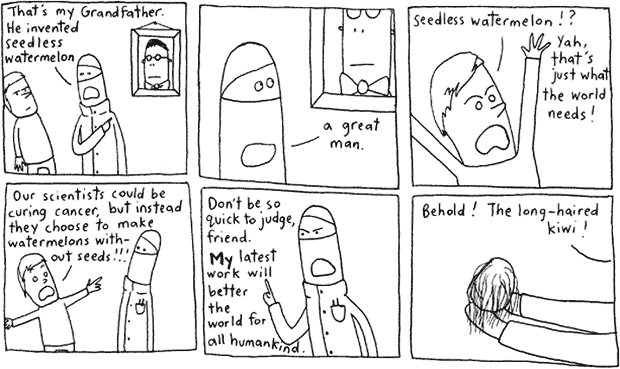 That's my Grandfather.
He invented
seedless
watermelon
a great
man.
Seedless watermelon!?
Yah,
that's
just what
the world
needs!
Our scientists could be
curing cancer, but instead
they choose to make
watermelons with-
out seeds!!!
Don't be so
quick to judge,
friend.
My latest
work will
better
the
world for
all humankind.
Behold! The long-haired
kiwi!